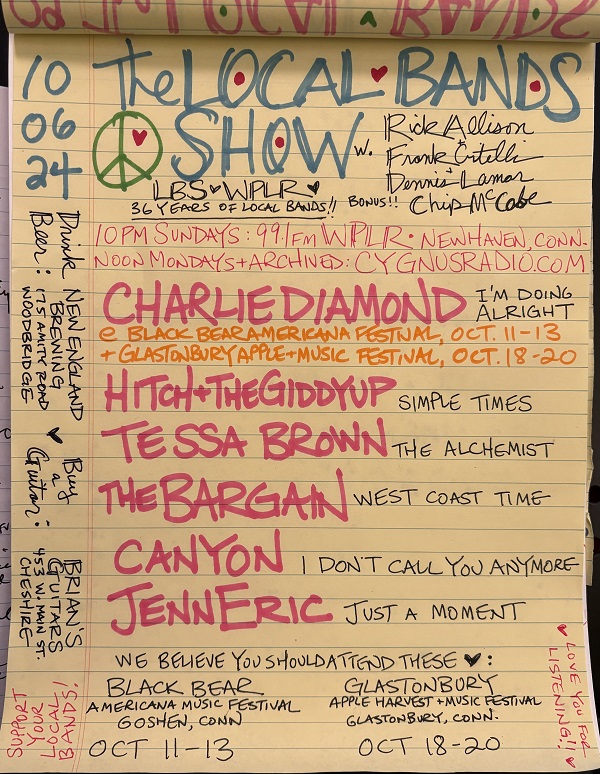 10
06
24
The LOCAL BANDS
SHOW
w. Rick Allison
+ Frank Critelli
+ Dennis Lamar
BONUS!! Chip McCabe
LBS ♥ WPLR ♥
36 YEARS OF LOCAL BANDS!!
10PM SUNDAYS: 99.1FM WPLR • NEW HAVEN, CONN.
NOON MONDAYS + ARCHIVED: CYGNUSRADIO.COM
CHARLIE DIAMOND I'M DOING
ALRIGHT
@ BLACK BEAR AMERICANA FESTIVAL, OCT. 11-13
+ GLASTONBURY APPLE + MUSIC FESTIVAL, OCT. 18-20
HITCH + THE GIDDYUP SIMPLE TIMES
TESSA BROWN THE ALCHEMIST
THE BARGAIN WEST COAST TIME
CANYON I DON'T CALL YOU ANYMORE
JENNERIC JUST A MOMENT
WE BELIEVE YOU SHOULD ATTEND THESE ♥:
BLACK BEAR
AMERICANA MUSIC FESTIVAL
GOSHEN, CONN
OCT 11-13
GLASTONBURY
APPLE HARVEST + MUSIC FESTIVAL
GLASTONBURY, CONN.
OCT 18-20
Drink
Beer:
NEW ENGLAND
BREWING
175 AMITY ROAD
WOODBRIDGE
♥
Buy
a
Guitar:
BRIAN'S
GUITARS
453 W. MAIN ST.
CHESHIRE
SUPPORT
YOUR
LOCAL
BANDS!
♥ LOVE YOU FOR
LISTENING!! ♥